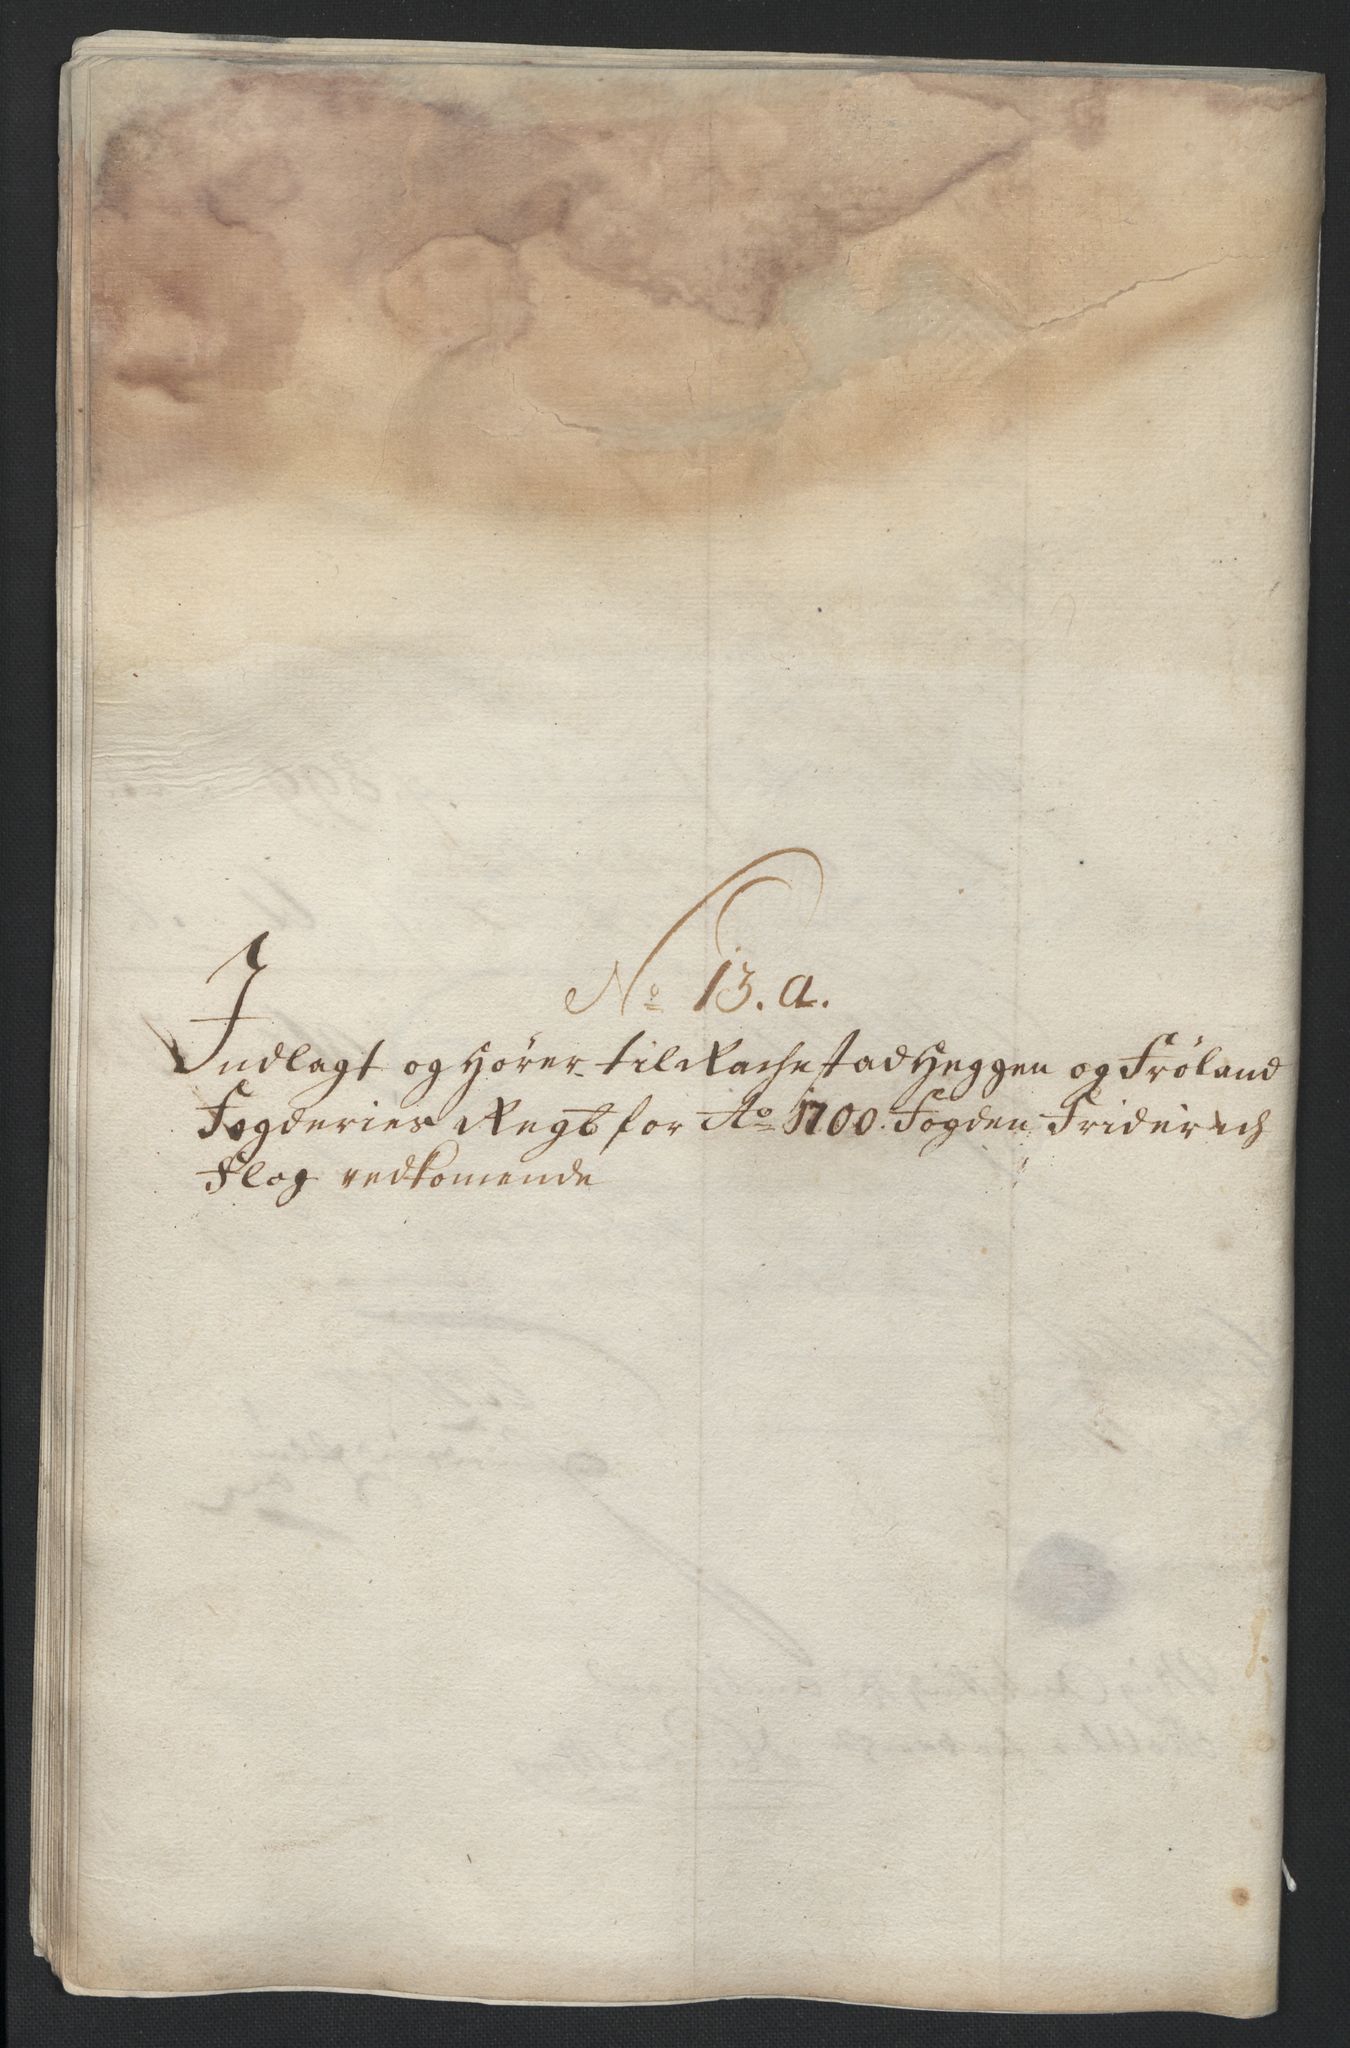 No 13. A.
Indlagt og Hører til Rachestad Heggen og Frøland
Fogderies Regt for Ao 1700. Fogden Friderich
Flog vedkomende